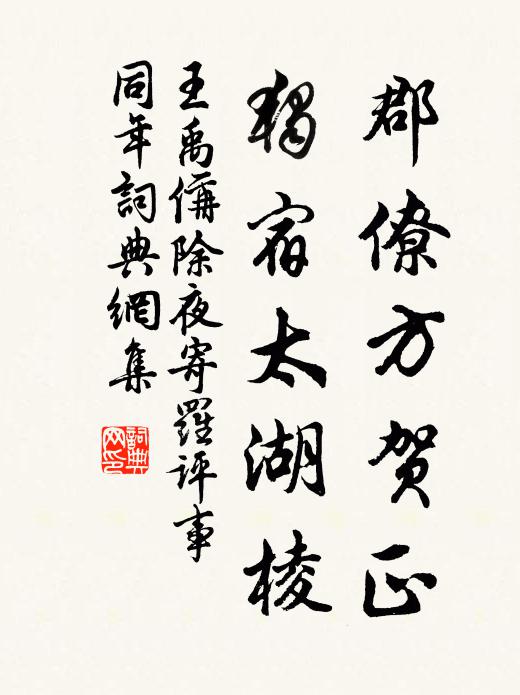 郡僚方贺正
獨宿太湖棱
王禹偁除夜寄羅评事
同年詞典網集
詞典网印